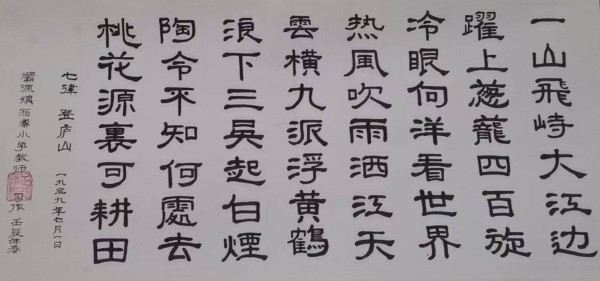 一山飛峙大江边
躍上葱龍四百旋
冷眼向洋看世界
热風吹雨洒江天
雲橫九派浮黄鶴
浪下三吳起白煙
陶令不知何處去
桃花源裏可耕田
七律 登庐山
一九五九年七月一日
小学教师 习作 壬辰年春